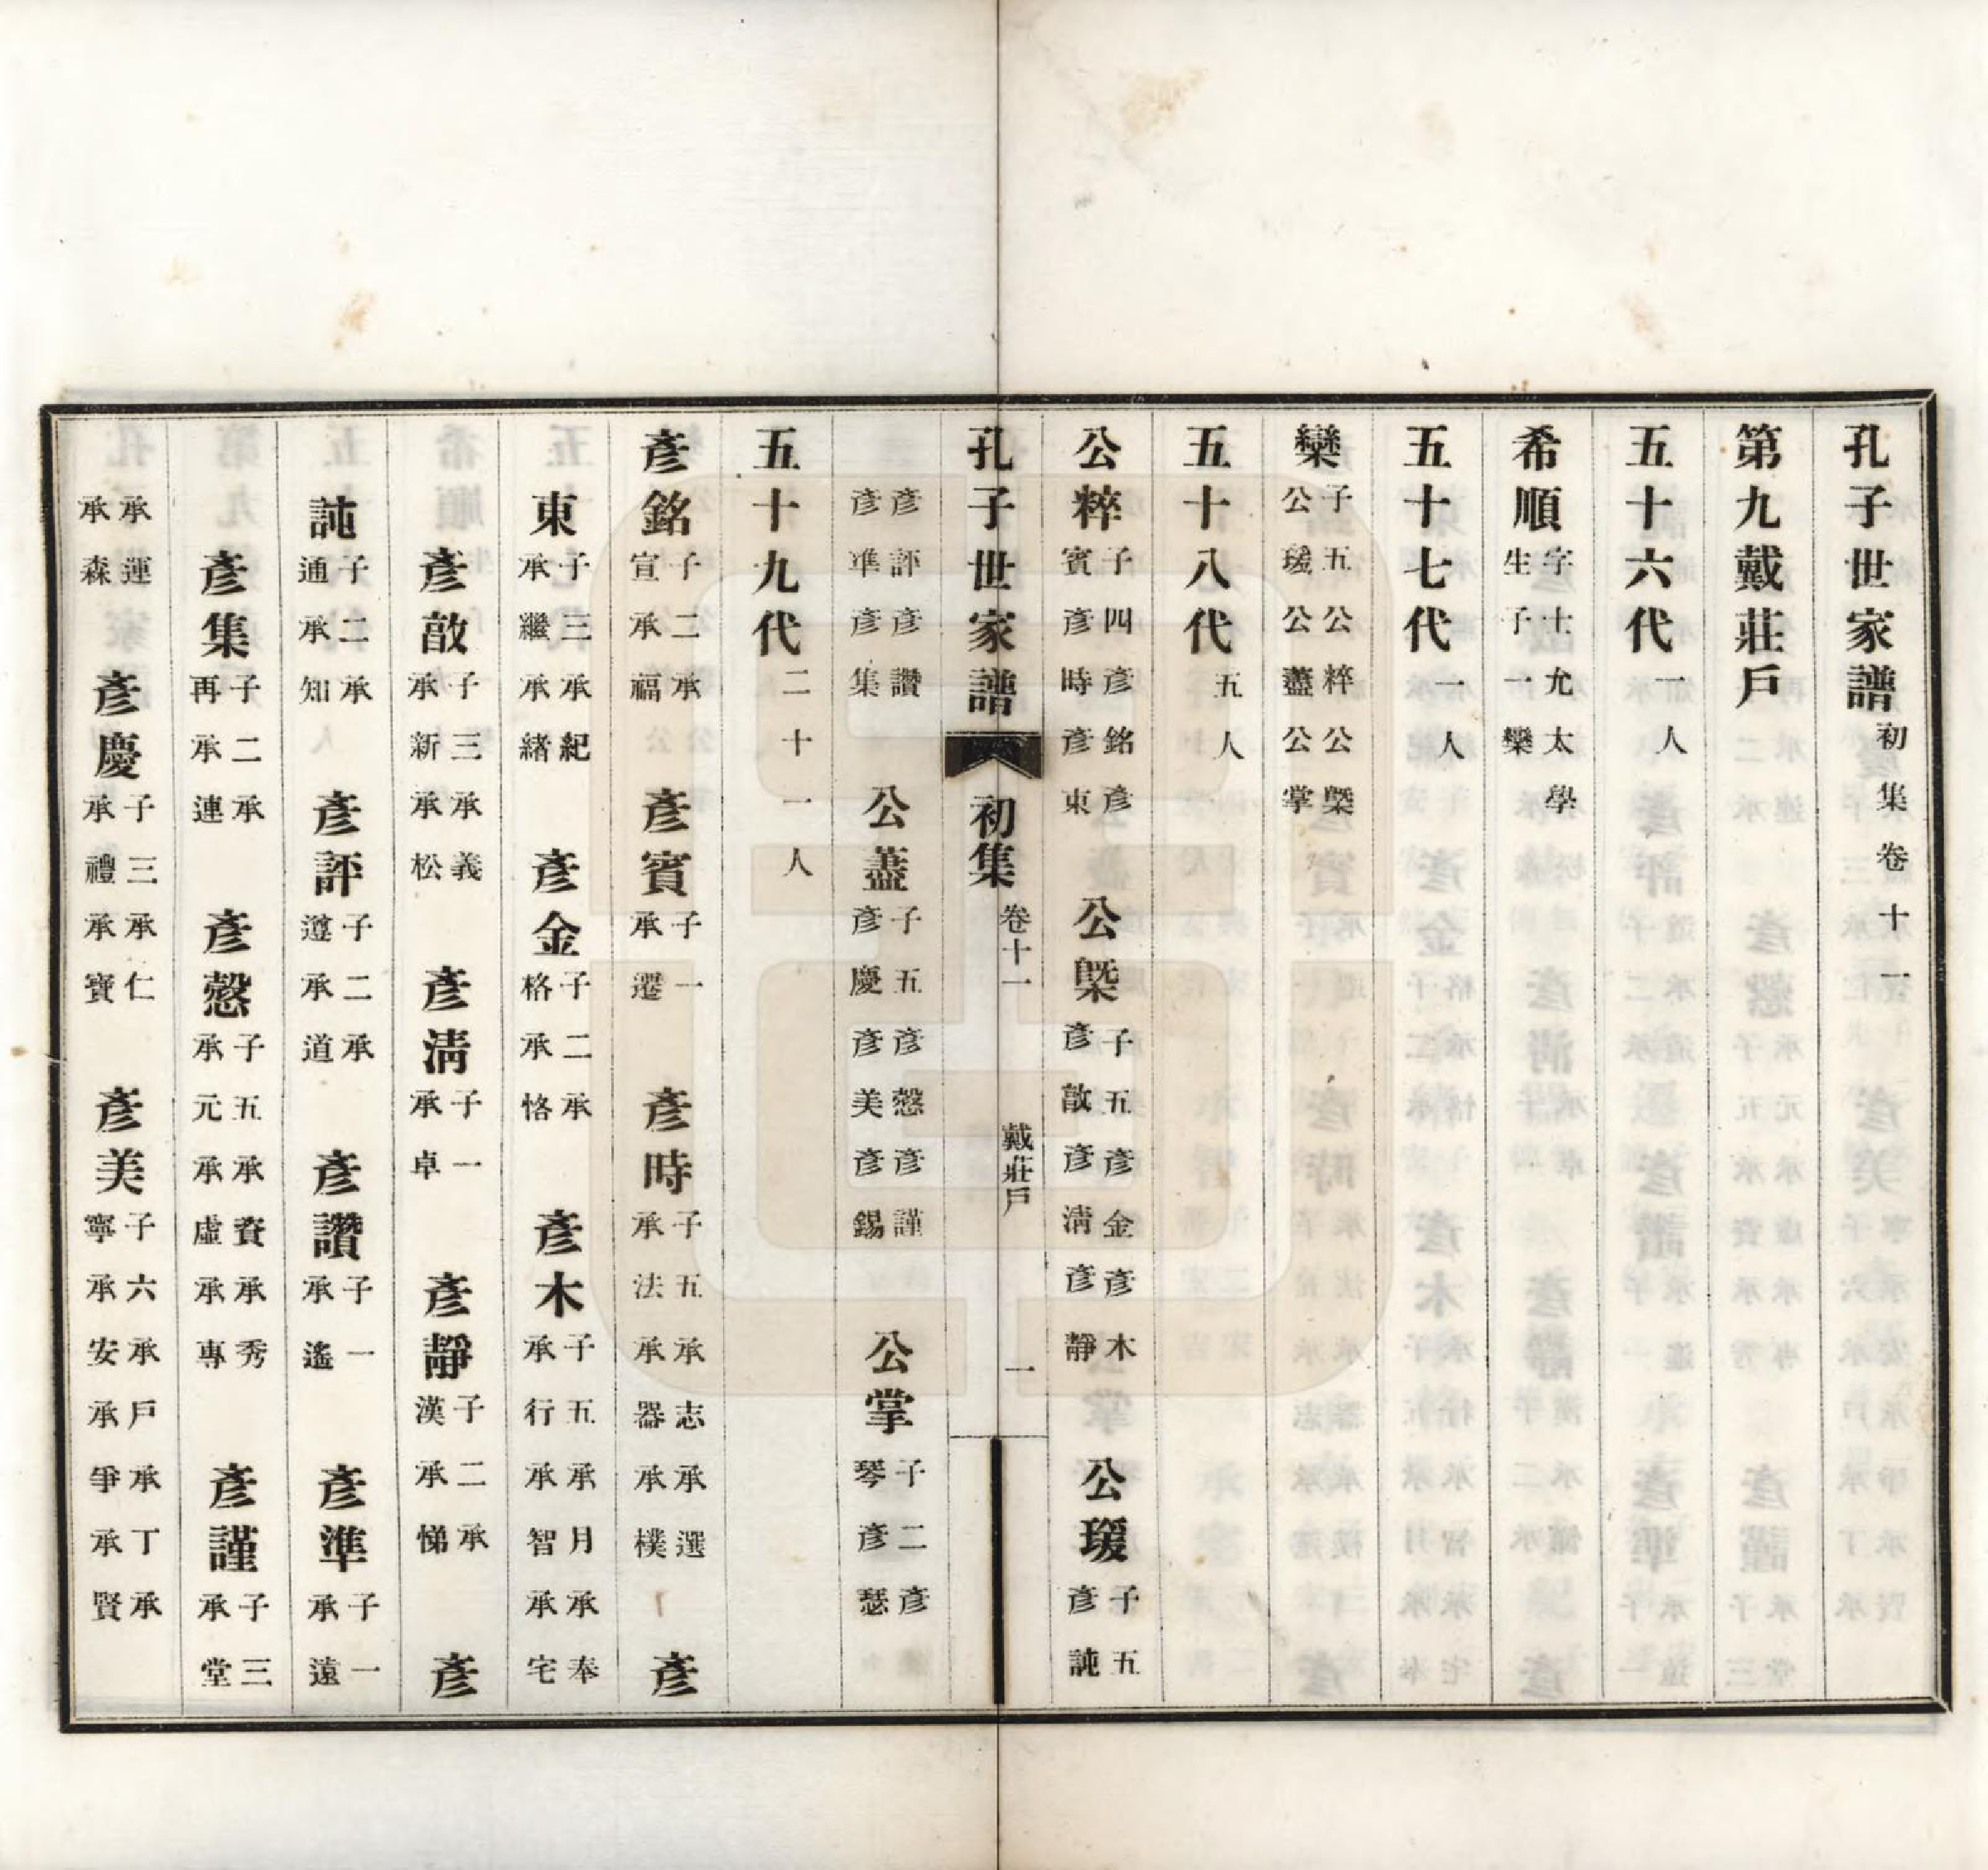 孔子世家譜初集卷十一
第九戴莊戶
五十六代一人
希順字士允太學生子一欒
五十七代一人
欒子五公粹公槩公瑗公藎公掌
五十八代五人
公粹子四彥銘彥賓彥時彥東　公槩子五彥金彥木彥敔彥清彥靜　公瑗子五彥訰
孔子世家譜　初集　卷十一　戴莊戶　一
彥評彥讚彥準彥集　公藎子五彥慶彥愨彥美彥謹彥錫　公掌子二彥琴彥瑟
五十九代二十一人
彥銘子二承宣承福　彥賓子一承遷　彥時子五承法承志承器承選承樸　彥
東子三承繼承紀承緒　彥金子二承格承恪　彥木子五承行承月承智承奉承宅
彥敔子三承新承義承松　彥清子一承卓　彥靜子二承漢承悌　彥
訰子二承通承知　彥評子二承遵承道　彥讚子一承遙　彥準子一承遠
彥集子二承再承連　彥愨子五承元承資承虛承秀承專　彥謹子三承堂
承運承森　彥慶子三承禮承仁承寶　彥美子六承寧承安承戶承爭承丁承賢